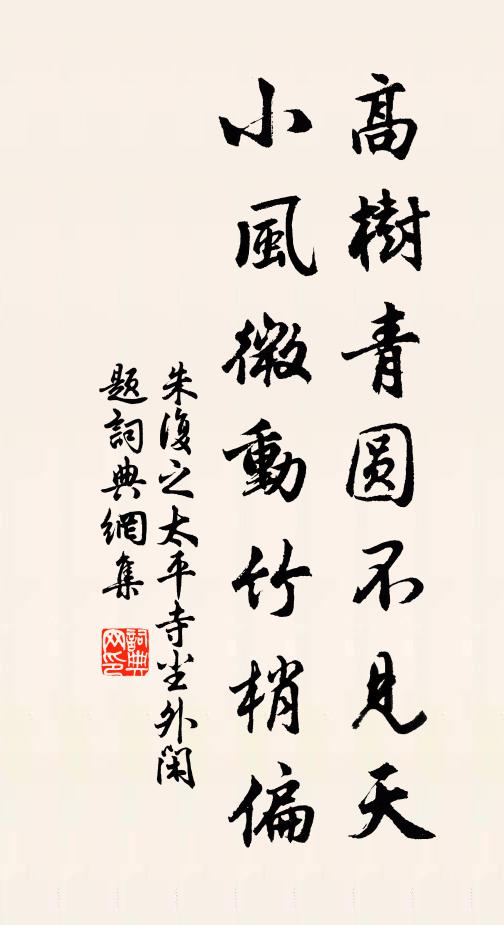 高樹青圆不见天
小風微動竹梢偏
朱復之太平寺尘外閑
题詞典網集
詞典网印